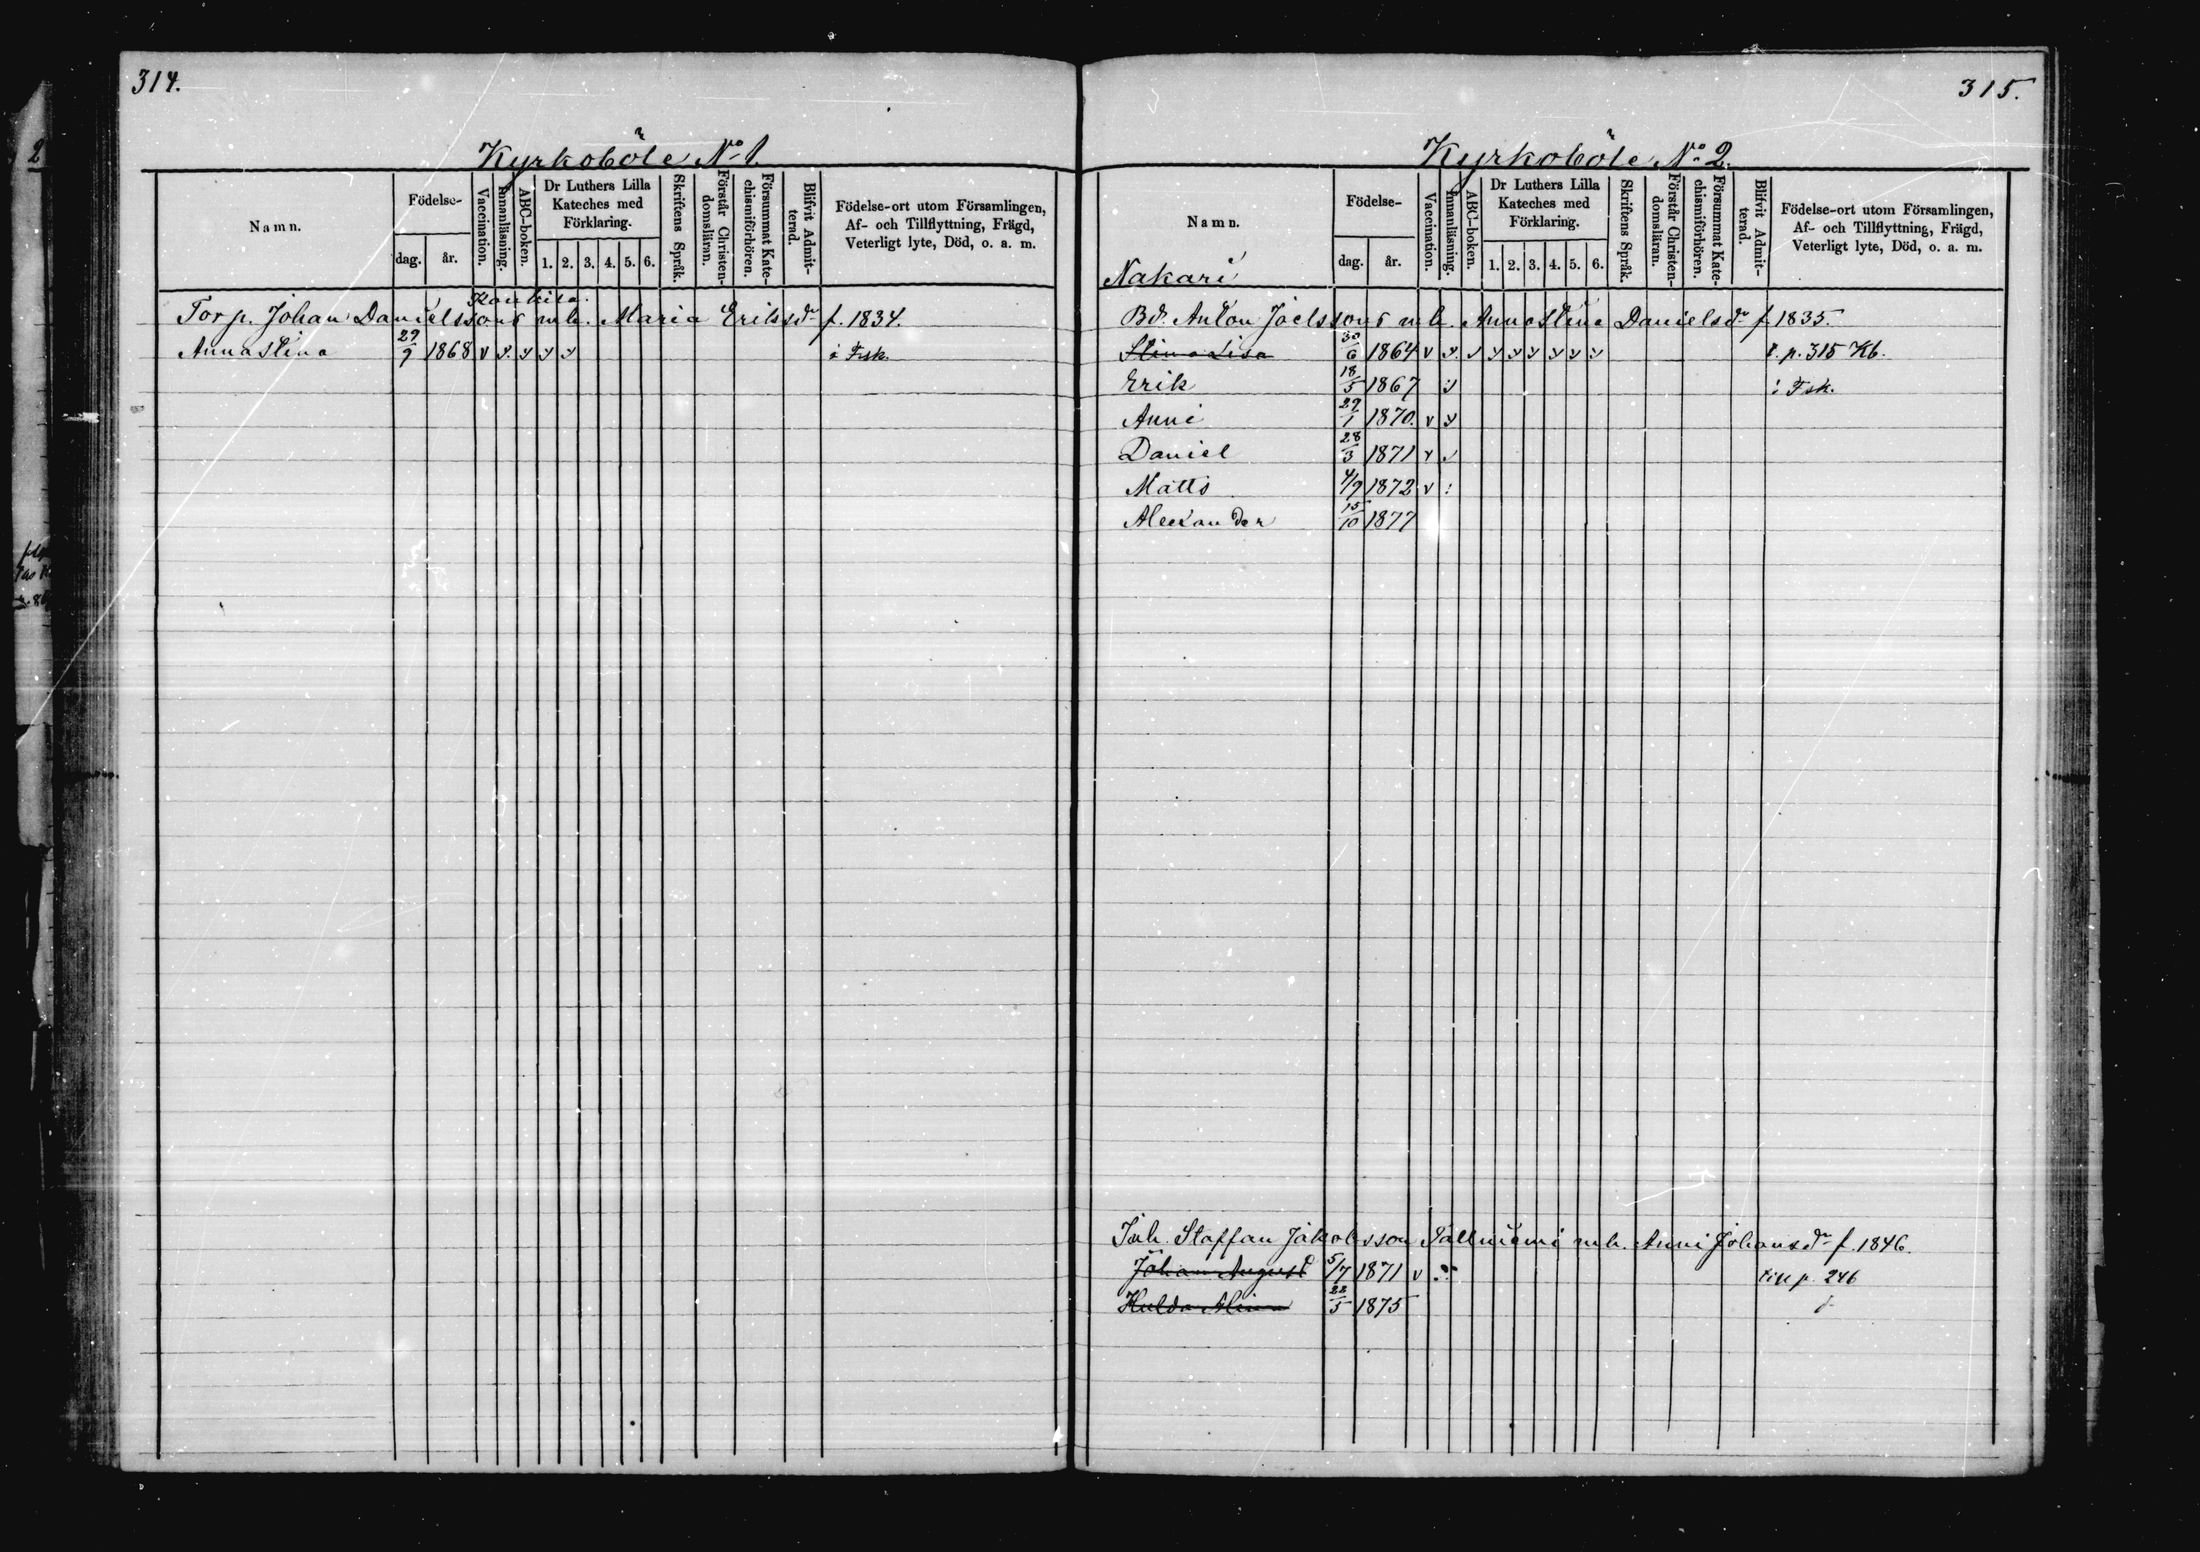 314.
Kyrkoböle No 1.
Namn.
Födelse-
dag.
år.
Vaccination.
Innanläsning.
ABC-boken.
Dr Luthers Lilla
Kateches med
Förklaring.
1. 2. 3. 4. 5. 6.
Skriftens Språk.
Förstår Christen-
domsläran.
Försummat Kate-
chismiförhören.
Blifvit Admit-
terad.
Födelse-ort utom Församlingen,
Af- och Tillflyttning, Frägd,
Veterligt lyte, Död, o. a. m.
Torp. Johan Danielssons mh. Maria Eriksdr f. 1834.
Anna Stina 29/9 1868 v v v v v i Fsk.
315.
Kyrkoböle No 2.
Namn.
Nakari
Födelse-
dag.
år.
Vaccination.
Innanläsning.
ABC-boken.
Dr Luthers Lilla
Kateches med
Förklaring.
1. 2. 3. 4. 5. 6.
Skriftens Språk.
Förstår Christen-
domsläran.
Försummat Kate-
chismiförhören.
Blifvit Admit-
terad.
Födelse-ort utom Församlingen,
Af- och Tillflyttning, Frägd,
Veterligt lyte, Död, o. a. m.
Bd. Anton Joelssons mh. Anna Stina Danielsdr f. 1835.
Stina Lisa 30/6 1864 v v v v v v v v v t. p. 315 Kb.
Erik 18/5 1867 i Fsk.
Anni 29/1 1870. v v
Daniel 28/3 1871 v v
Matts 4/9 1872 v
Alexander 15/10 1877
Inh. Staffan Jakobsson Tallniemi mh. Anni Johansdr f. 1846.
Johan August 5/7 1871 v till p. 246
Hulda Alina 22/5 1875